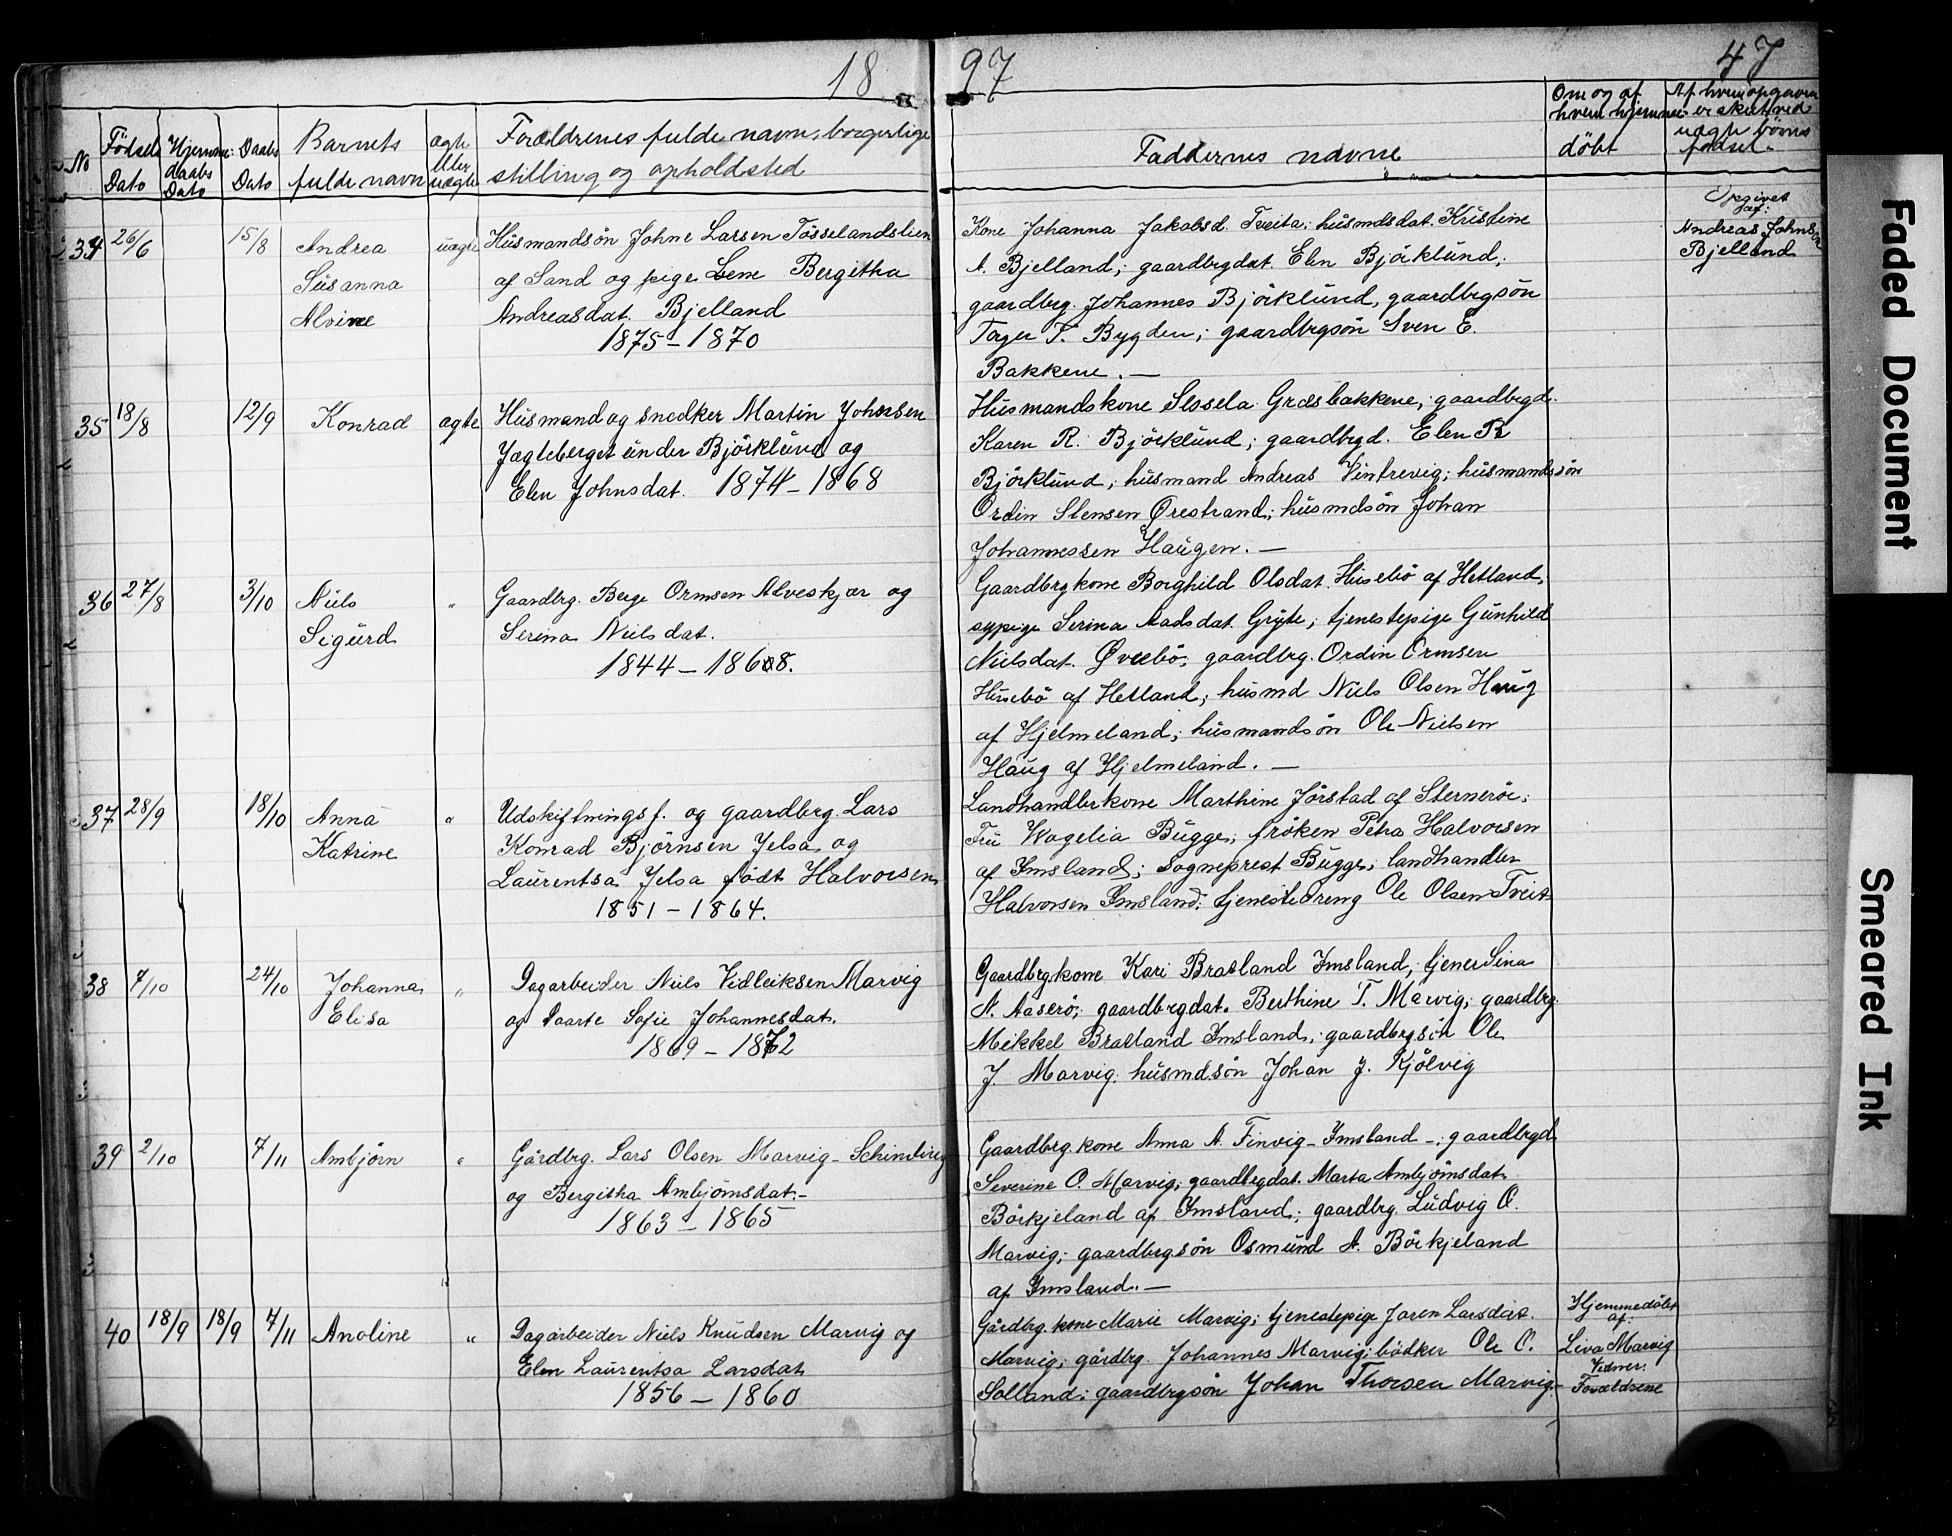 18 97
47
No
Födsels Dato
Hjemme daabs Dato
Daabs Dato
Barnets fulde navn
ægte eller uægte
Forældrenes fulde navn, borgerlige
stilling og opholdsted
Faddernes navne
Om og af hvem hjemme- döbt
Af hvem opgaven er skeet ved uægte börns födsel.
34 26/6 15/8 Andrea Susanna Alvine uægte
Husmandsön Johne Larsen Tösselandslien
af Sand og pige Lene Bergitha
Andreasdat. Bjelland
1875 - 1870
Kone Johanna Jakobsd. Tveita; husmdsdat. Kristine
A. Bjelland; gaardbrgdat. Elen Björklund;
gaardbrg. Johannes Björklund, gaardbrgsön
Torger T. Bygden; gaardbrgsön Sven E.
Bakkene. —
Opgivet af:
Andreas Johnsen
Bjelland
35 18/8 12/9 Konrad ægte
Husmand og snedker Martin Johnsen
Jagteberget under Björklund og
Elen Johnsdat. 1874 - 1868
Husmandskone Sessela Græsbakkene; gaardbrgd.
Karen R. Björklund; gaardbrgd. Elen R
Björklund; husmand Andreas Vintrevig; husmandssön
Ordin Stensen Ørestrand; husmdsön Johan
Johannessen Haugen. —
36 27/8 3/10 Niels Sigurd "
Gaardbrg. Berge Ormsen Alveskjær og
Serina Nielsdat.
1844 - 1868.
Gaardbrgkone Borghild Olsdat. Husebö af Hetland,
sypige Serina Aadsdat. Gryte; tjenestepige Gunhild
Nielsdat. Øvrebö; gaardbrg. Ordin Ormsen
Husebö af Hetland; husmd Niels Olsen Haug
af Hjelmeland; husmandsön Ole Nielsen
Haug af Hjelmeland. —
37 28/9 18/10 Anna Katrine "
Udskiftningsf. og gaardbrg. Lars
Konrad Björnsen Jelsa og
Laurentsa Jelsa födt Halvorsen
1851 - 1864.
Landhandlerkone Marthine Jörstad af Sterneröe;
Fru Wogelia Bugge; fröken Petra Halvorsen
af Imsland; Sogneprest Bugge; landhandler
Halvorsen Imsland; tjenestedreng Ole Olsen Tveit
38 7/10 24/10 Johanna Elisa "
Dagarbeider Niels Vidleiksen Marvig
og Daarte Sofie Johannesdat.
1869 - 1872
Gaardbrgkone Kari Braaland Imsland; tjener Sina
N. Aaserö; gaardbrgdat. Berthine T. Marvig; gaardbrg.
Mikkel Braaland Imsland; gaardbrgsön Ole
J. Marvig; husmdsön Johan J. Kjölvig
39 2/10 7/11 Ambjörn "
Gårdbrg. Lars Olsen Marvig - Schinving
og Bergitha Ambjörnsdat. -
1863 - 1865
Gaardbrg.kone Anna A. Finvig - Imsland -; gaardbrgd
Severine O. Marvig; gaardbrgdat. Marta Ambjörnsdat.
Börkjeland af Imsland; gaardbrg. Ludvig O.
Marvig; gaardbrgsön Osmund A. Börkjeland
af Imsland. —
40 18/9 18/9 7/11 Anoline "
Dagarbeider Niels Knudsen Marvig og
Elen Laurentsa Larsdat
1856 - 1860
Gårdbrg.kone Marie Marvig; tjenestepige Joren Larsdat.
Marvig; gårdbrg. Johannes Marvig; bödker Ole O.
Solland; gaardbrgsön Johan Thorsen Marvig.
Hjemmedöbt af:
Liva Marvig
Vidner:
Forældrene
Faded Document
Smeared Ink